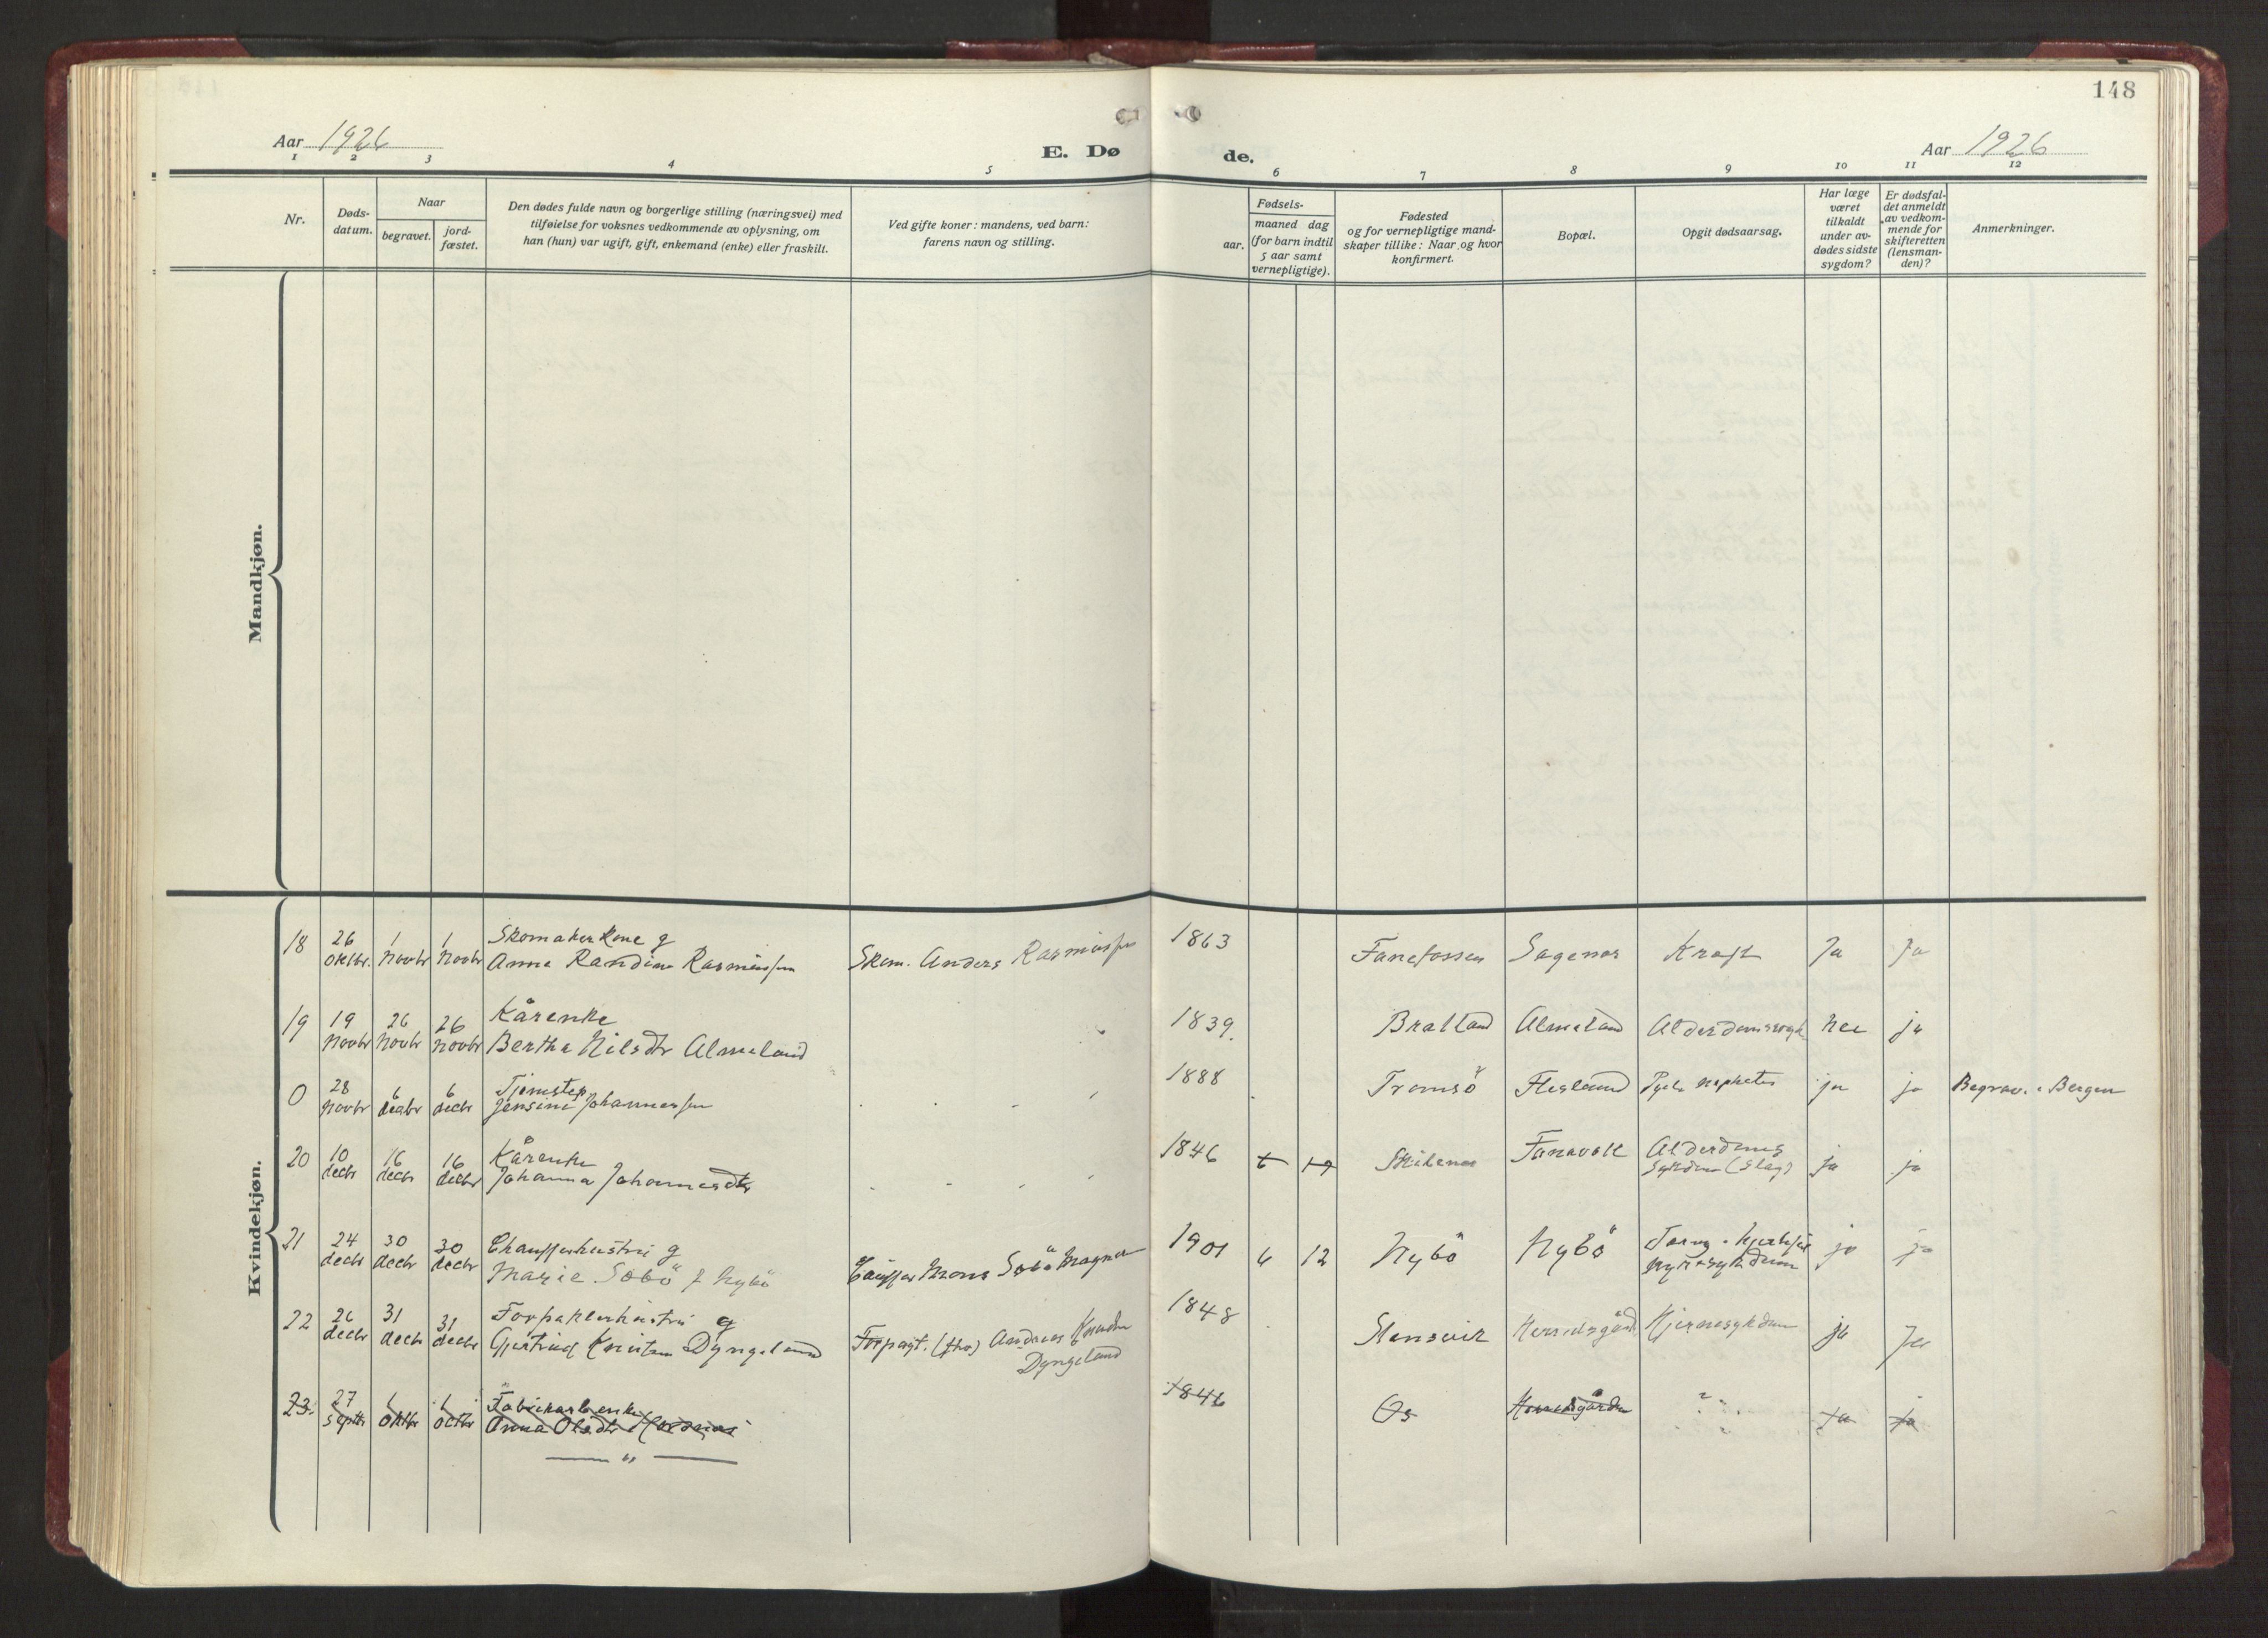 148
Aar 1926
E. Dø
de.
Aar 1926
1 2 3 4 5 6 7 8 9 10 11 12
Nr.
Døds-
datum.
Naar
begravet.
jord-
fæstet.
Den dødes fulde navn og borgerlige stilling (næringsvei) med
tilføielse for voksnes vedkommende av oplysning, om
han (hun) var ugift, gift, enkemand (enke) eller fraskilt.
Ved gifte koner: mandens, ved barn:
farens navn og stilling.
Fødsels-
aar.
maaned dag
(for barn indtil
5 aar samt
vernepligtige).
Fødested
og for vernepligtige mand-
skaper tillike: Naar og hvor
konfirmert.
Bopæl.
Opgit dødsaarsag.
Har læge
været
tilkaldt
under av-
dødes sidste
sygdom?
Er dødsfal-
det anmeldt
av vedkom-
mende for
skifteretten
(lensman-
den)?
Anmerkninger.
Mandkjøn.
Kvindekjøn.
18 26 1 1 Skomakerkone g 1863
oktbr. Novbr Novbr Anna Randine Rasmussen Skom. Anders Rasmussen Fanefossen Sagenes Kræft Ja Ja
19 19 26 26 Kårenke 1839.
Novbr Novbr Novbr Bertha Nilsdtr Almeland Bratland Almeland Nei ja
0 28 6 6 1888
Novbr decbr decbr Jensine Johannessen Tromsö Flesland ja ja Begrav. i Bergen
20 10 16 16 Kårenke 1846 Alderdoms
decbr decbr decbr Johanna Johannesdtr 6 17 Fanavoll (Slag) ja ja
21 24 30 30 g 1901
decbr decbr decbr Marie Söbö f Nybö Mons Söbö Magnus 6 12 Nybö Nybö ja ja
22 26 31 31 g 1848
decbr decbr decbr Gjertrud Knutsen Dyngeland Forpagt. Andreas Knudsen Stensvik Hjernesykdom ja Ja
Dyngeland
23. 27 1 1 1846
septbr oktbr octbr Anna Olsdtr Os ja ja